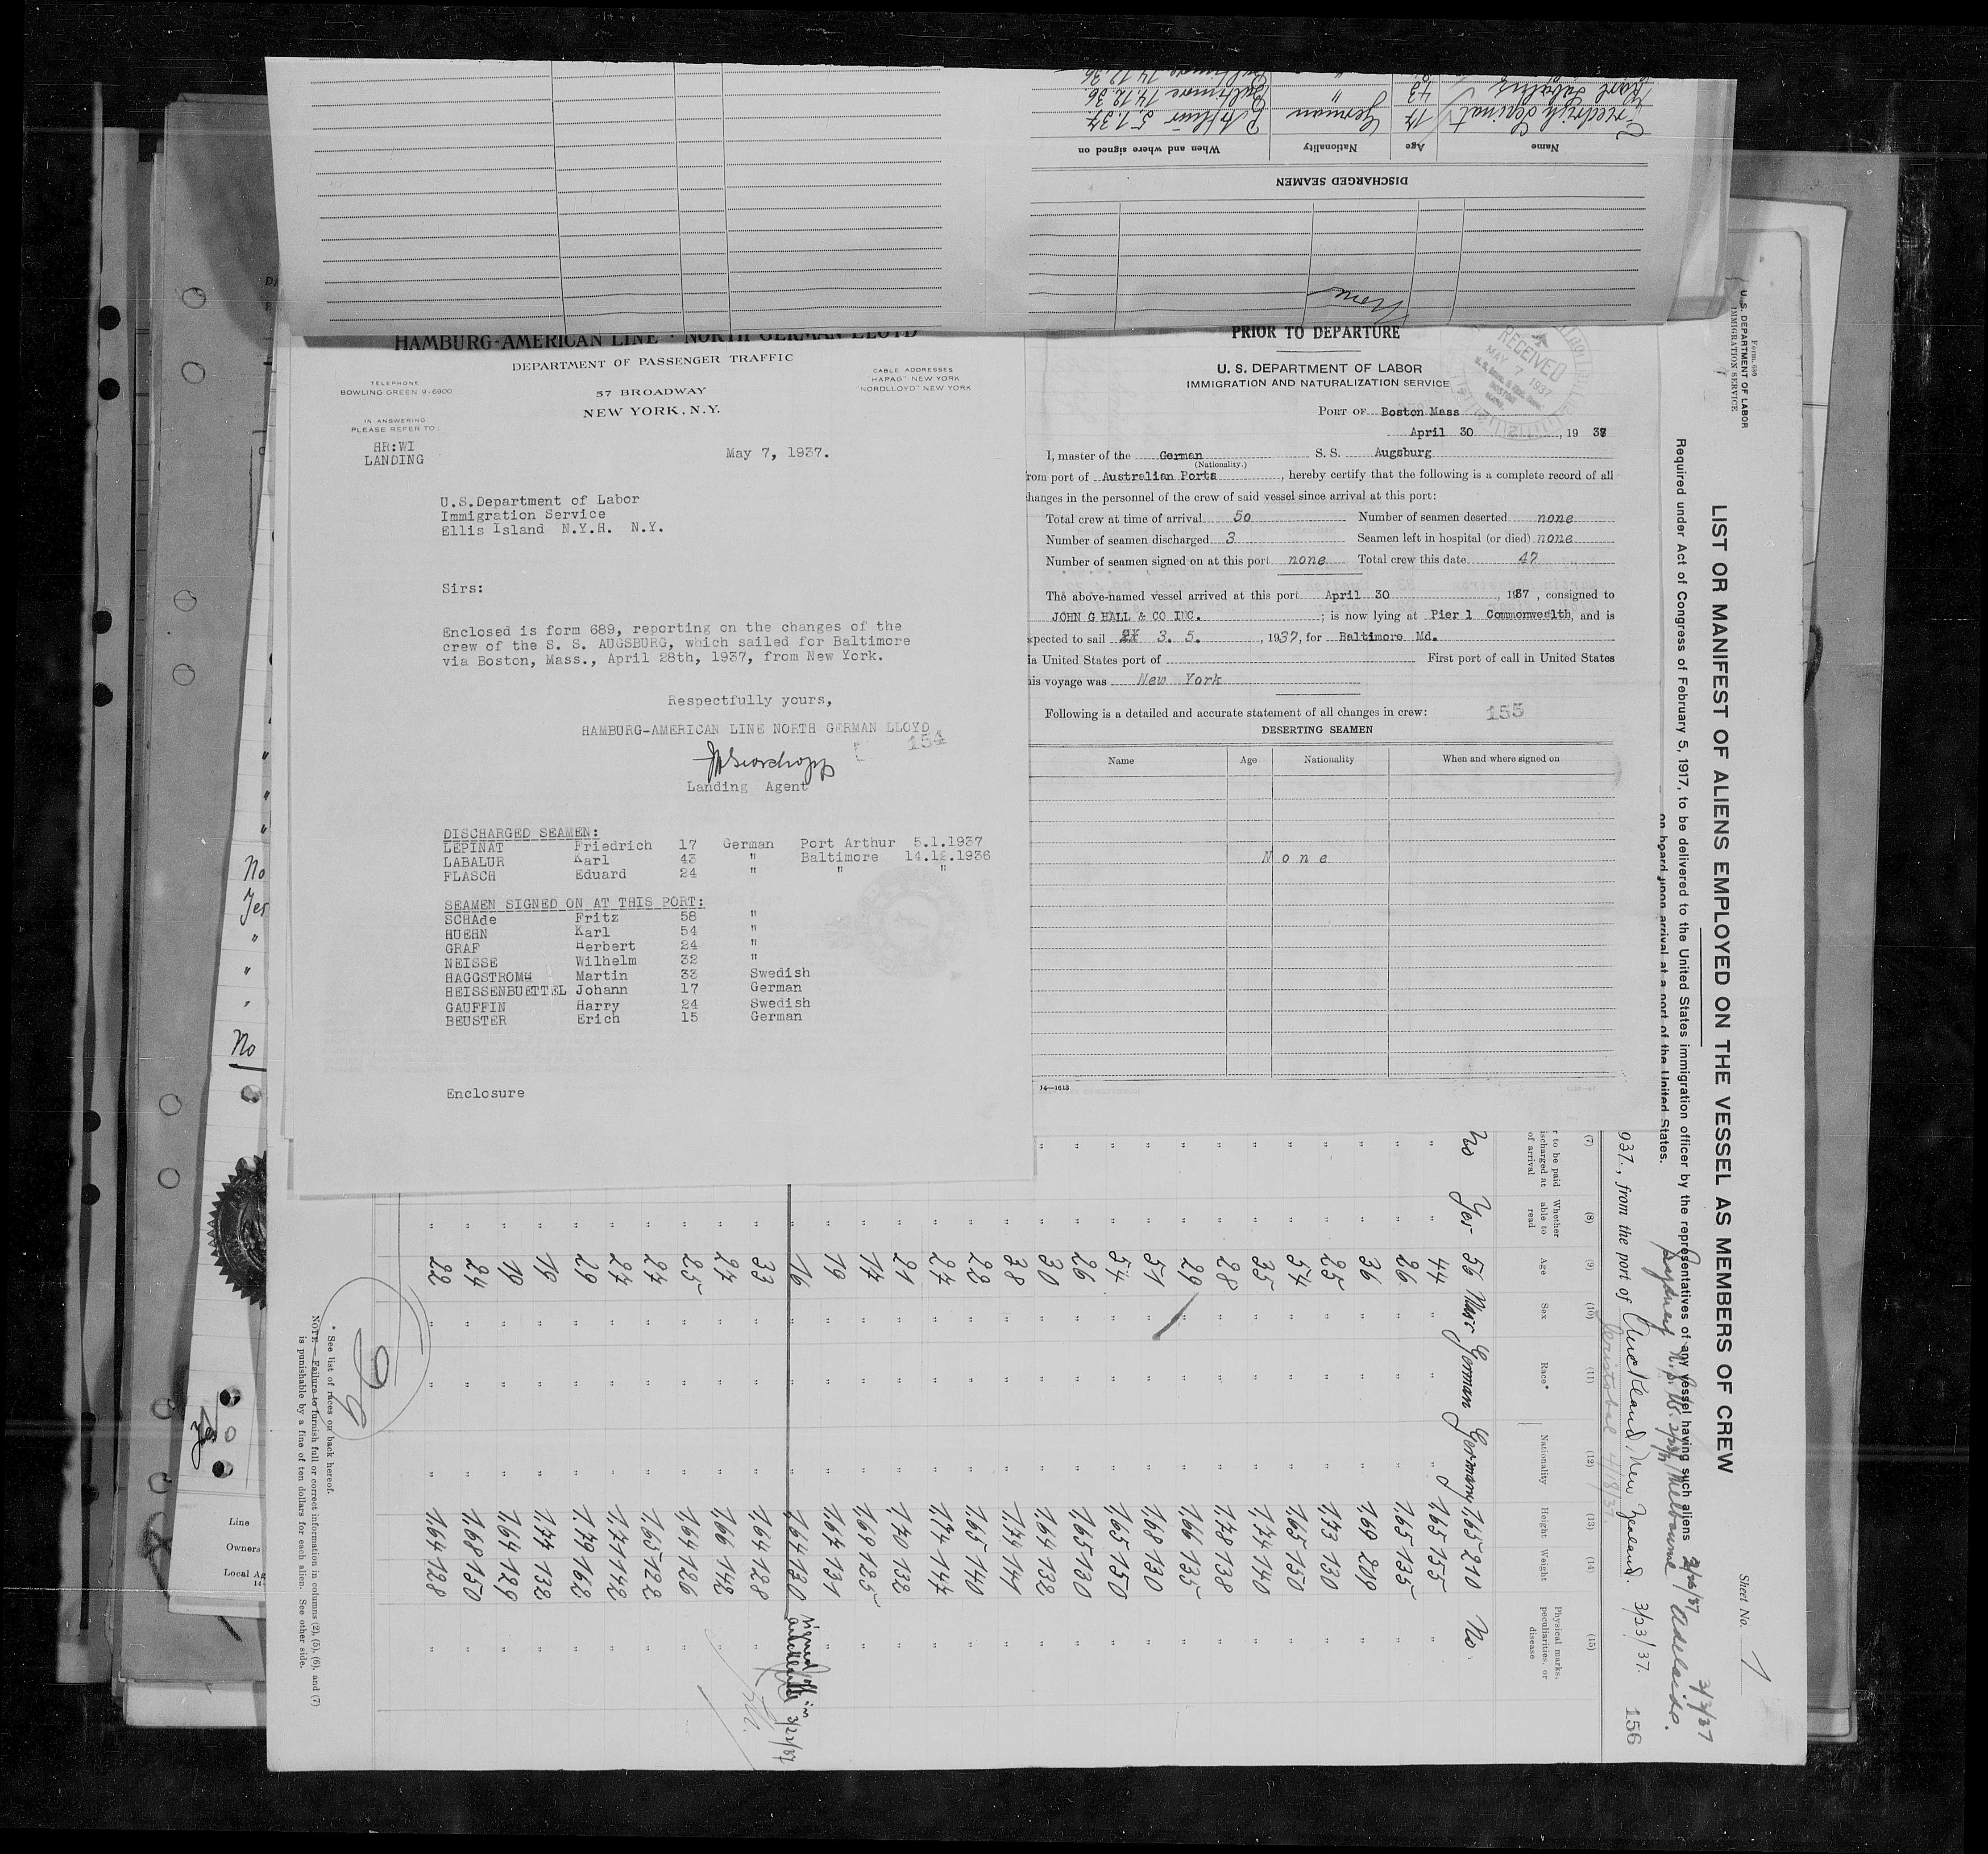 HAMBURG-AMERICAN LINE · NORTH GERMAN LLOYD
DEPARTMENT OF PASSENGER TRAFFIC
TELEPHONE
BOWLING GREEN 9-6900
57 BROADWAY
NEW YORK, N.Y.
CABLE ADDRESSES
"HAPAG" NEW YORK
"NORDLLOYD" NEW YORK
IN ANSWERING
PLEASE REFER TO:
HR:WI
LANDING
May 7, 1937.
U.S.Department of Labor
Immigration Service
Ellis Island N.Y.H. N.Y.
Sirs:
Enclosed is form 689, reporting on the changes of the
crew of the S. S. AUGSBURG, which sailed for Baltimore
via Boston, Mass., April 28th, 1937, from New York.
Respectfully yours,
HAMBURG-AMERICAN LINE NORTH GERMAN LLOYD
154
Landing Agent
DISCHARGED SEAMEN:
LEPINAT Friedrich 17 German Port Arthur 5.1.1937
LABALUR Karl 43 " Baltimore 14.12.1936
FLASCH Eduard 24 " " "
SEAMEN SIGNED ON AT THIS PORT:
SCHAde Fritz 58 "
HUEHN Karl 54 "
GRAF Herbert 24 "
NEISSE Wilhelm 32 "
HAGGSTROM Martin 33 Swedish
HEISSENBUETTEL Johann 17 German
GAUFFIN Harry 24 Swedish
BEUSTER Erich 15 German
Enclosure
DISCHARGED SEAMEN
Name Age Nationality When and where signed on
Friedrich Lepinat 17 German P. Arthur 5.1.37
Karl 43 " Baltimore 14.12.36
Baltimore 14.12.36
PRIOR TO DEPARTURE
U. S. DEPARTMENT OF LABOR
IMMIGRATION AND NATURALIZATION SERVICE
RECEIVED
MAY 7 1937
PORT OF Boston Mass
April 30, 19 37
I, master of the German S. S. Augsburg
(Nationality.)
rom port of Australian Ports, hereby certify that the following is a complete record of all
hanges in the personnel of the crew of said vessel since arrival at this port:
Total crew at time of arrival 50 Number of seamen deserted none
Number of seamen discharged 3 Seamen left in hospital (or died) none
Number of seamen signed on at this port none Total crew this date 47
The above-named vessel arrived at this port April 30, 1937, consigned to
JOHN G HALL & CO INC.; is now lying at Pier 1 Commonwealth, and is
xpected to sail 3. 5., 1937, for Baltimore Md.
ia United States port of First port of call in United States
is voyage was New York
Following is a detailed and accurate statement of all changes in crew:
155
DESERTING SEAMEN
Name Age Nationality When and where signed on
None
14—1613
Form 689
U. S. DEPARTMENT OF LABOR
IMMIGRATION SERVICE
Sheet No. 1
LIST OR MANIFEST OF ALIENS EMPLOYED ON THE VESSEL AS MEMBERS OF CREW
Required under Act of Congress of February 5, 1917, to be delivered to the United States immigration officer by the representatives of any vessel having such aliens
on board upon arrival at a port of the United States.
Sydney N.S.W. Melbourne / Adelaide. 3/3/37
937., from the port of Auckland / New Zealand. 3/23/37.
156
(7) (8) (9) (10) (11) (12) (13) (14) (15)
r to be paid
ischarged at
of arrival
Whether
able to
read
Age
Sex
Race*
Nationality
Height
Weight
Physical marks,
peculiarities, or
disease
No Yes 56 German Germany 1.65 210 No.
" " 44 " " " 1.65 155 "
" " 26 " " " 1.65 135 "
" " 36 " " " 1.69 209 "
" " 25 " " " 1.73 130 "
" " 54 " " " 1.65 150 "
" " 35 " " " 1.74 140 "
" " 28 " " " 1.78 138 "
" " 29 " " " 1.66 135 "
" " 51 " " " 1.68 130 "
" " 54 " " " 1.65 150 "
" " 26 " " " 1.65 130 "
" " 30 " " " 1.64 132 "
" 38 " " " 1.74 141 "
" 22 " " " 1.65 140 "
" 27 " " " 1.74 144 "
" 21 " " " 1.70 132 "
" 17 " " " 1.69 125 "
" 19 " " " 1.67 131 "
" 16 " " " 1.64 130 signed off in Auckland 3/21/37
" 33 " " " 1.64 128 "
" 27 " " " 1.66 142 "
" 25 " " " 1.64 126 "
" 27 " " " 1.65 122 "
" 27 " " " 1.71 142 "
" 29 " " " 1.79 162 "
" 19 " " " 1.77 132 "
" 19 " " " 1.64 129 "
" 24 " " " 1.68 150 "
" 22 " " " 1.64 128 "
* See list of races on back hereof.
NOTE.—Failure to furnish full or correct information in columns (2), (5), (6), and (7)
is punishable by a fine of ten dollars for each alien. See other side.
No
Yes
"
"
No
Yes
Line
Owners
Local Ag